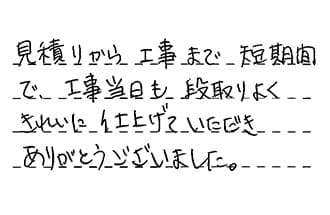 見積りから 工事まで 短期間
で、工事当日も 段取りよく
きれいに 仕上げていただき
ありがとうございました。